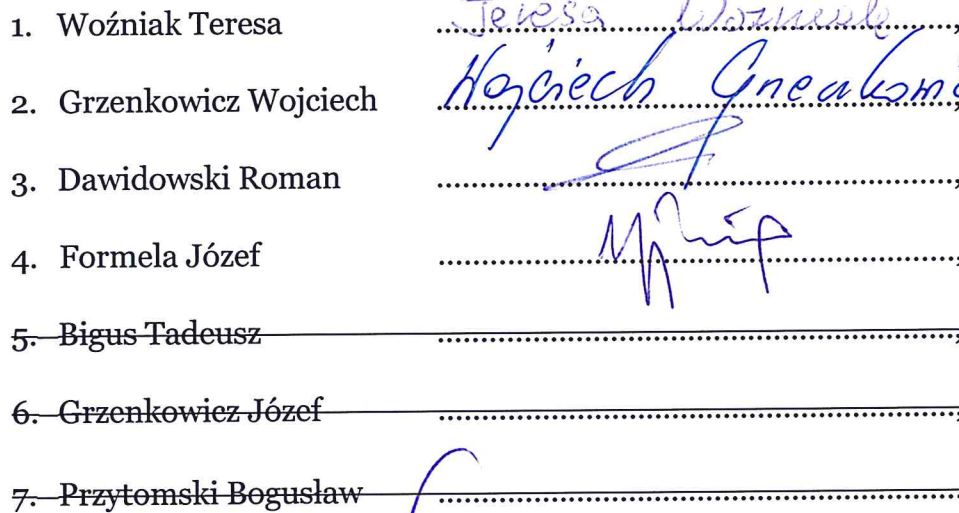 1. Woźniak Teresa Teresa Woźniak
2. Grzenkowicz Wojciech Wojciech
3. Dawidowski Roman
4. Formela Józef
5. Bigus Tadeusz
6. Grzenkowicz Józef
7. Przytomski Bogusław